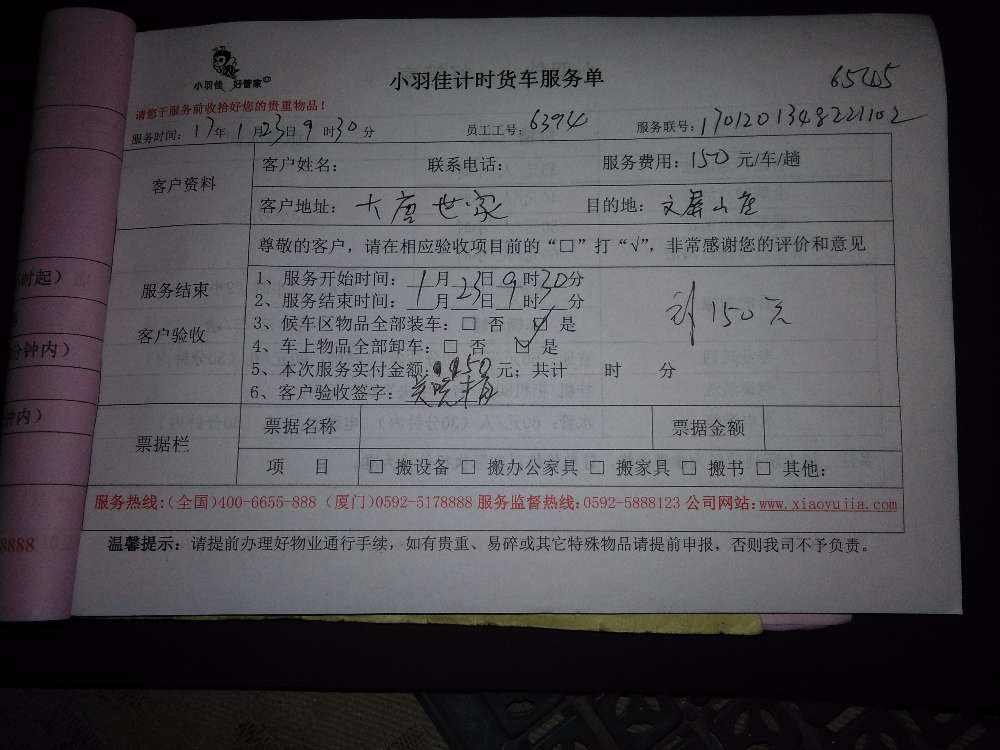 小羽佳 好管家
小羽佳计时货车服务单
请您于服务前收拾好您的贵重物品！
服务时间：17年1月23日9时30分 员工工号：6394 服务联号：1701201348221102
客户资料
客户姓名： 联系电话： 服务费用：150元/车/趟
客户地址：大唐世家 目的地：文屏山庄
尊敬的客户，请在相应验收项目前的“□”打“√”，非常感谢您的评价和意见
服务结束
客户验收
1、服务开始时间：1月23日9时30分
2、服务结束时间：1月23日9时 分
3、候车区物品全部装车：□ 否 ☑ 是
4、车上物品全部卸车：□ 否 ☑ 是
5、本次服务实付金额：150元；共计 时 分
6、客户验收签字：
150元
票据栏
票据名称 票据金额
项 目 □ 搬设备 □ 搬办公家具 □ 搬家具 □ 搬书 □ 其他：
服务热线：(全国)400-6655-888 (厦门)0592-5178888 服务监督热线：0592-5888123 公司网站：www.xiaoyujia.com
温馨提示：请提前办理好物业通行手续，如有贵重、易碎或其它特殊物品请提前申报，否则我司不予负责。
时起）
分钟内）
钟内）
8888